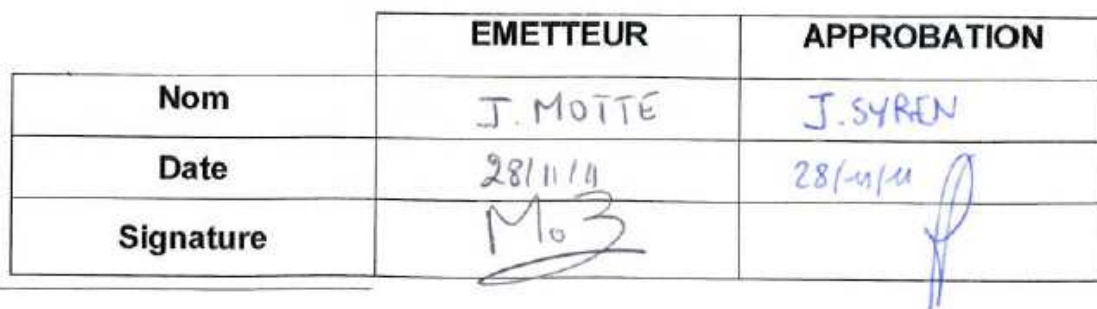 EMETTEUR APPROBATION
Nom J. MOTTE J. SYREN
Date 28/11/11 28/11/11
Signature